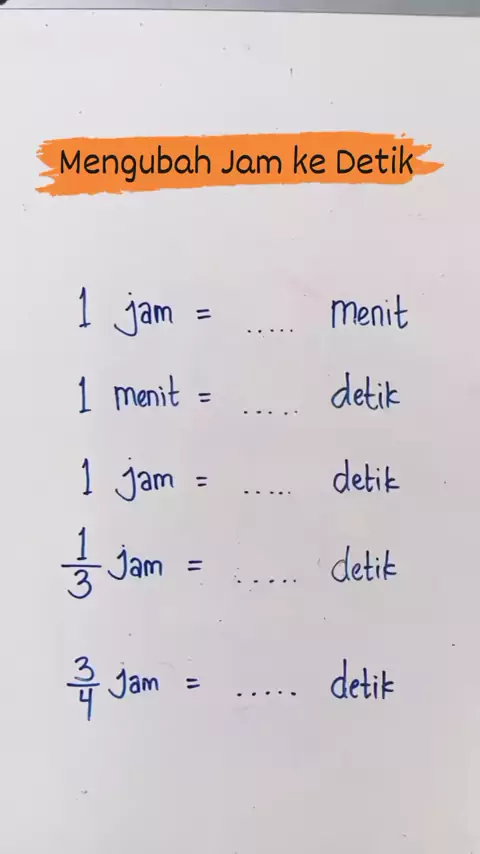 Mengubah Jam ke Detik
1 jam = ..... menit
1 menit = ..... detik
1 jam = ..... detik
1/3 jam = ..... detik
3/4 jam = ..... detik